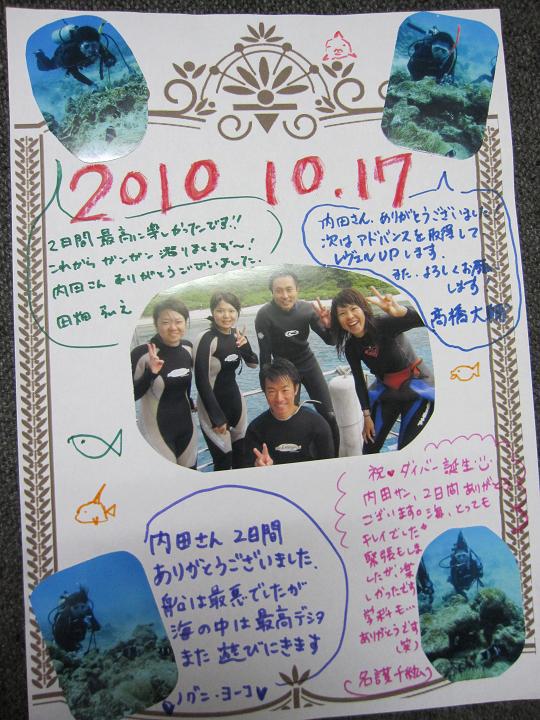 2010 10.17
2日間 最高に楽しかったです!!
これから ガンガン 潜りまくるぞ〜!
内田さん ありがとうございました.
田畑
内田さん、ありがとうございました
次は アドバンスを取得して
レヴェルUPします.
また、よろしくお願い
します
高橋大
祝♥ダイバー誕生
内田サン、2日間ありがとう
ございます。海、とっても
キレイでした
緊張もしま
したが、楽
しかったです
学科も…
ありがとうです
(笑)
名護千紘
内田さん 2日間
ありがとうございました.
船は最悪でしたが
海の中は最高デシタ
また 遊びにきます
♥ノグニ・ヨーコ♥